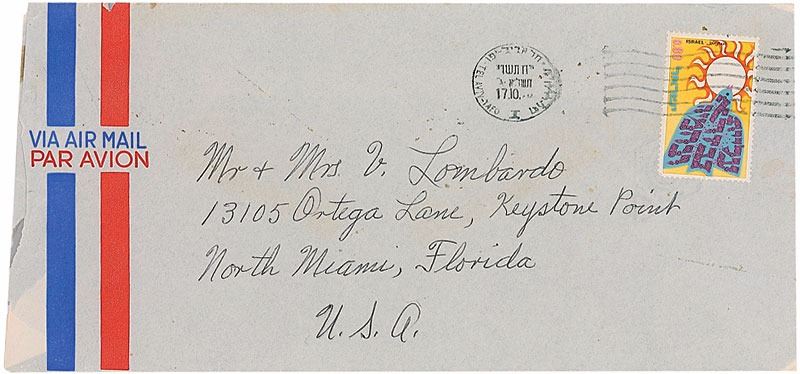 VIA AIR MAIL
PAR AVION
תל אביב-יפו
י"ח תשרי
17.10.
TEL AVIV-YAFO
ISRAEL
0.80
Mr + Mrs. V. Lombardo
13105 Ortega Lane, Keystone Point
North Miami, Florida
U. S. A.